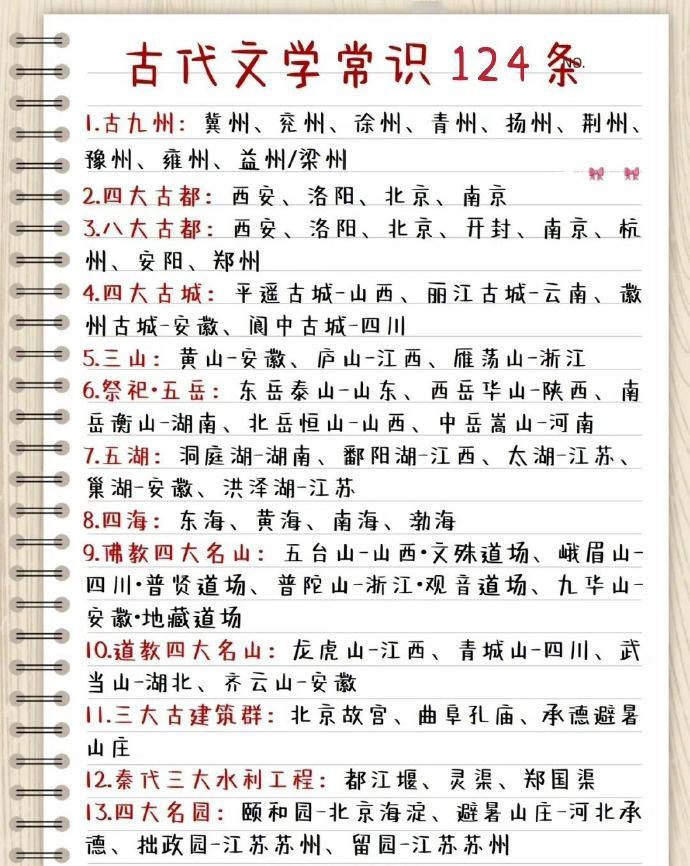 古代文学常识124条
NO.
1.古九州：冀州、兖州、徐州、青州、扬州、荆州、
豫州、雍州、益州/梁州
2.四大古都：西安、洛阳、北京、南京
3.八大古都：西安、洛阳、北京、开封、南京、杭
州、安阳、郑州
4.四大古城：平遥古城-山西、丽江古城-云南、徽
州古城-安徽、阆中古城-四川
5.三山：黄山-安徽、庐山-江西、雁荡山-浙江
6.祭祀·五岳：东岳泰山-山东、西岳华山-陕西、南
岳衡山-湖南、北岳恒山-山西、中岳嵩山-河南
7.五湖：洞庭湖-湖南、鄱阳湖-江西、太湖-江苏、
巢湖-安徽、洪泽湖-江苏
8.四海：东海、黄海、南海、渤海
9.佛教四大名山：五台山-山西·文殊道场、峨眉山-
四川·普贤道场、普陀山-浙江·观音道场、九华山-
安徽·地藏道场
10.道教四大名山：龙虎山-江西、青城山-四川、武
当山-湖北、齐云山-安徽
11.三大古建筑群：北京故宫、曲阜孔庙、承德避暑
山庄
12.秦代三大水利工程：都江堰、灵渠、郑国渠
13.四大名园：颐和园-北京海淀、避暑山庄-河北承
德、拙政园-江苏苏州、留园-江苏苏州